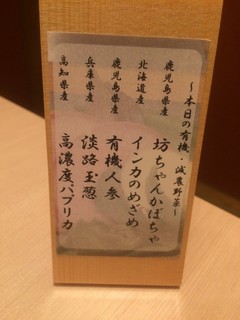 ～本日の有機・減農野菜～
鹿児島県産 坊ちゃんかぼちゃ
北海道産 インカのめざめ
鹿児島県産 有機人参
兵庫県産 淡路玉葱
高知県産 高濃度パプリカ